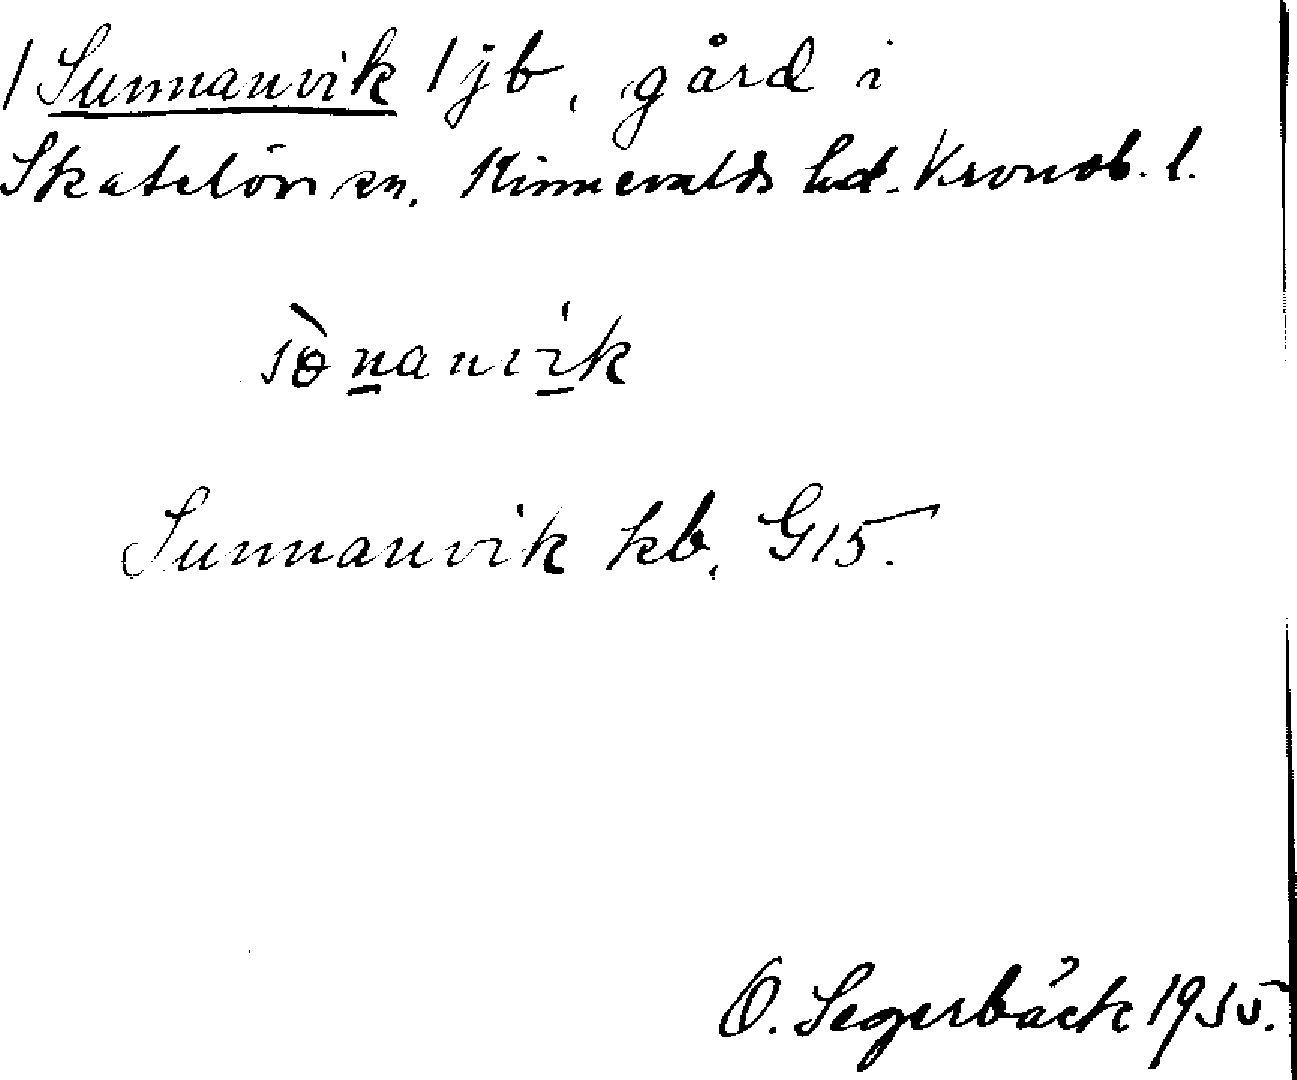 /Sunnanvik/ jb, gård i
Skatelövs sn. Kinnevalds hd. Kronob. l.
sɵ̀nanvik
Sunnanvik kb, G15.
O. Segerbäck 1955.